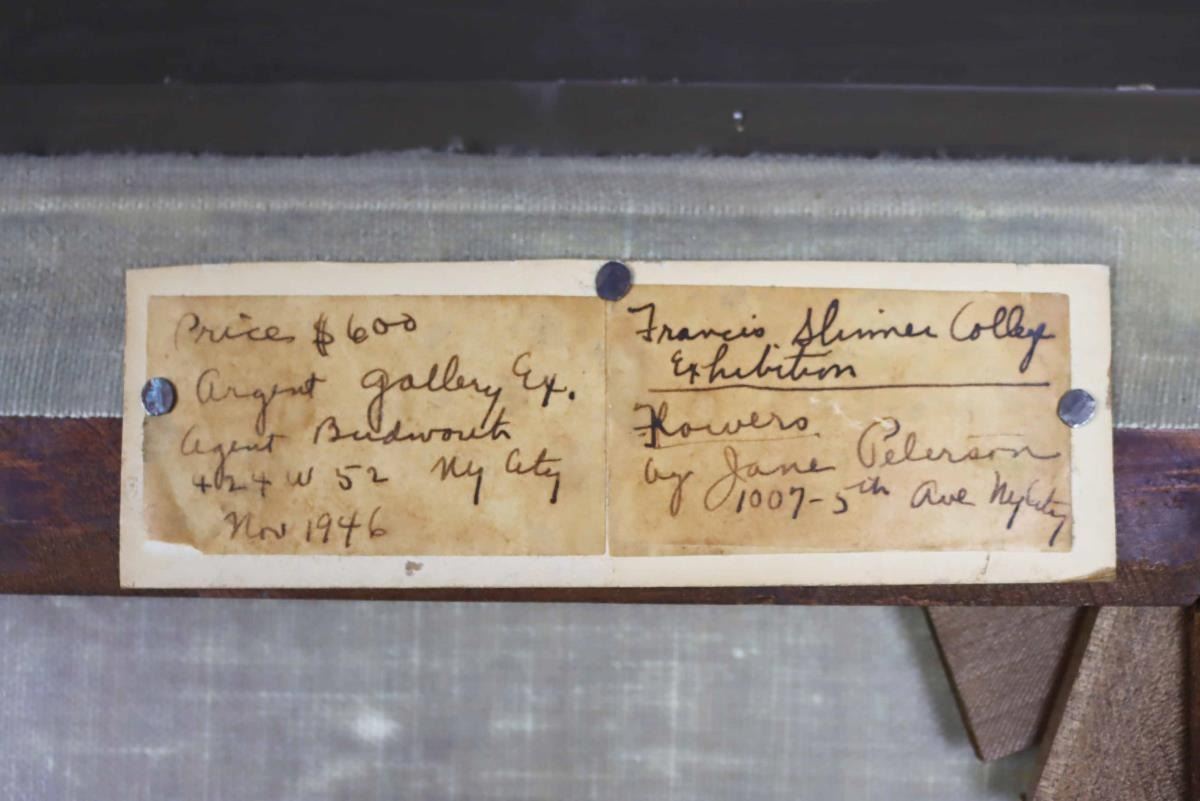 Price $600
Argent Gallery Ex.
Agent Budworth
424 W 52 Ny City
Nov 1946
Francis Skinner College
Exhibition
Flowers
by Jane Peterson
1007-5th Ave Ny City